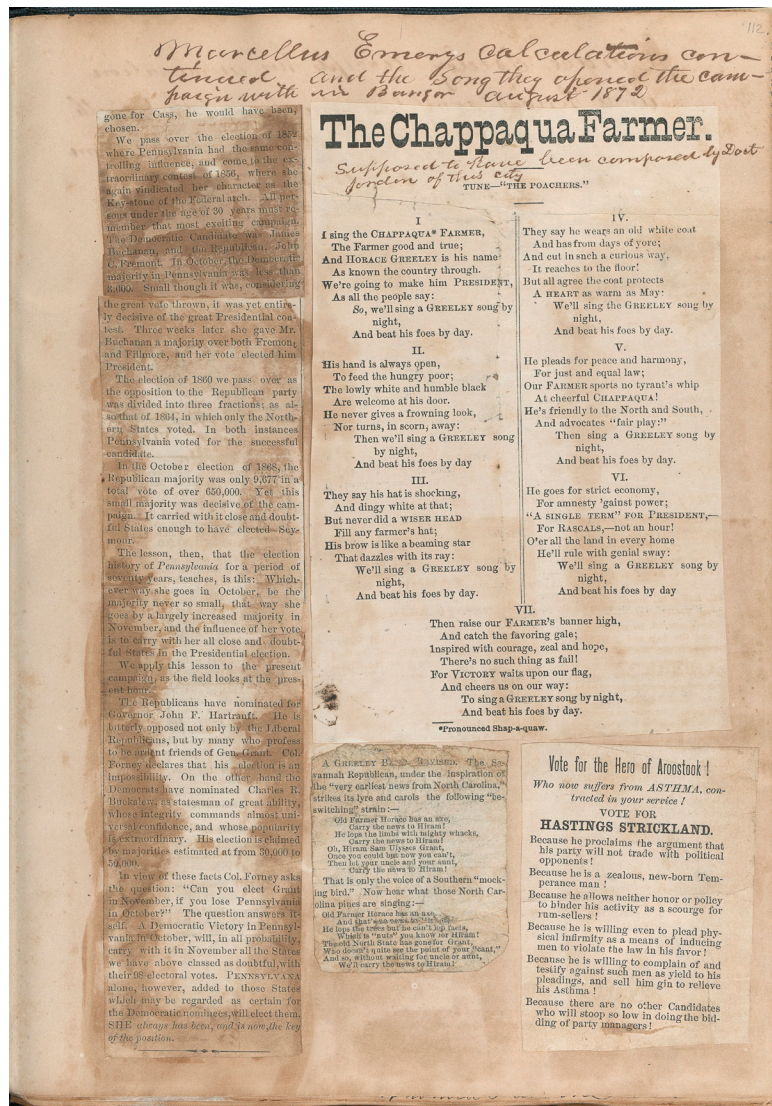 112
Marcellus Emerys calculations con-
tinued and the Song they opened the cam-
paign with in Bangor august 1872
gone for Cass, he would have been,
chosen.
We pass over the election of 1852
where Pennsylvania had the same con-
trolling influence, and come to the ex-
traordinary contest of 1856, where she
again vindicated her character as the
Key-stone of the Federal arch. All per-
sons under the age of 30 years must re-
member that most exciting campaign.
The Democratic Candidate was James
Buchanan, and the Republican, John
C. Fremont. In October, the Democratic
majority in Pennsylvania was less than
3,000. Small though it was, considering
the great vote thrown, it was yet entire-
ly decisive of the great Presidential con-
test. Three weeks later she gave Mr.
Buchanan a majority over both Fremont
and Fillmore, and her vote elected him
President.
The election of 1860 we pass over as
the opposition to the Republican party
was divided into three fractions; as al-
so that of 1864, in which only the North-
ern States voted. In both instances
Pennsylvania voted for the successful
candidate.
In the October election of 1868, the
Republican majority was only 9,677 in a
total vote of over 650,000. Yet this
small majority was decisive of the cam-
paign. It carried with it close and doubt-
ful States enough to have elected Sey-
mour.
The lesson, then, that the election
history of Pennsylvania for a period of
seventy years, teaches, is this: Which-
ever way she goes in October, be the
majority never so small, that way she
goes by a largely increased majority in
November, and the influence of her vote
is to carry with her all close and doubt-
ful States in the Presidential election.
We apply this lesson to the present
campaign, as the field looks at the pres-
ent hour.
The Republicans have nominated for
Governor John F. Hartranft. He is
bitterly opposed not only by the Liberal
Republicans, but by many who profess
to be ardent friends of Gen. Grant. Col.
Forney declares that his election is an
impossibility. On the other hand the
Democrats have nominated Charles R.
Buckalew, as statesman of great ability,
whose integrity commands almost uni-
versal confidence, and whose popularity
is extraordinary. His election is claimed
by majorities estimated at from 30,000 to
50,000.
In view of these facts Col. Forney asks
the question: "Can you elect Grant
in November, if you lose Pennsylvania
in October?" The question answers it-
self. A Democratic Victory in Pennsyl-
vania in October, will, in all probability,
carry with it in November all the States
we have above classed as doubtful, with
their 98 electoral votes. PENNSYLVANA
alone, however, added to those States
which may be regarded as certain for
the Democratic nominees, will elect them.
SHE always has been, and is now, the key
of the position.
The Chappaqua Farmer.
Supposed to have been composed by Doct
Jordon of this city
TUNE—"THE POACHERS."
I
I sing the CHAPPAQUA* FARMER,
The Farmer good and true;
And HORACE GREELEY is his name
As known the country through.
We're going to make him PRESIDENT,
As all the people say:
So, we'll sing a GREELEY song by
night,
And beat his foes by day.
II.
His hand is always open,
To feed the hungry poor;
The lowly white and humble black
Are welcome at his door.
He never gives a frowning look,
Nor turns, in scorn, away:
Then we'll sing a GREELEY song
by night,
And beat his foes by day
III.
They say his hat is shocking,
And dingy white at that;
But never did a WISER HEAD
Fill any farmer's hat;
His brow is like a beaming star
That dazzles with its ray:
We'll sing a GREELEY song by
night,
And beat his foes by day.
IV.
They say he wears an old white coat
And has from days of yore;
And cut in snch a curious way,
It reaches to the floor!
But all agree the coat protects
A HEART as warm as May:
We'll sing the GREELEY song by
night,
And beat his foes by day.
V.
He pleads for peace and harmony,
For just and equal law;
Our FARMER sports no tyrant's whip
At cheerful CHAPPAQUA!
He's friendly to the North and South,
And advocates "fair play:"
Then sing a GREELEY song by
night,
And beat his foes by day.
VI.
He goes for strict economy,
For amnesty 'gainst power;
"A SINGLE TERM" FOR PRESIDENT,—
For RASCALS,—not an hour!
O'er all the land in every home
He'll rule with genial sway:
We'll sing a GREELEY song by
night,
And beat his foes by day
VII.
Then raise our FARMER'S banner high,
And catch the favoring gale;
Inspired with courage, zeal and hope,
There's no such thing as fail!
For VICTORY waits upon our flag,
And cheers us on our way:
To sing a GREELEY song by night,
And beat his foes by day.
*Pronounced Shap-a-quaw.
A GREELEY REVISED. The Sa-
vannah Republican, under the inspiration of
the "very earliest news from North Carolina,"
strikes its lyre and carols the following "be-
switching" strain:—
Old Farmer Horace has an axe,
Carry the news to Hiram!
He lops the limbs with mighty whacks,
Carry the news to Hiram!
Oh, Hiram Sam Ulysses Grant,
Once you could but now you can't,
Then let your uncle and your aunt,
Carry the news to Hiram!
That is only the voice of a Southern "mock-
ing bird." Now hear what those North Car-
olina pines are singing:—
Old Farmer Horace has an axe,
And that's no news to
He lops the trees but he can't lop facts,
Which is "nuts" you know for Hiram!
The old North State has gone for Grant,
Who doesn't quite see the point of your "cant,"
And so, without waiting for uncle or aunt,
We'll carry the news to Hiram!
Vote for the Hero of Aroostook !
Who now suffers from ASTHMA, con-
tracted in your service !
VOTE FOR
HASTINGS STRICKLAND.
Because he proclaims the argument that
his party will not trade with political
opponents !
Because he is a zealous, new-born Tem-
perance man !
Because he allows neither honor or policy
to hinder his activity as a scourge for
rum-sellers !
Because he is willing even to plead phy-
sical infirmity as a means of inducing
men to violate the law in his favor !
Because he is willing to complain of and
testify against such men as yield to his
pleadings, and sell him gin to relieve
his Asthma !
Because there are no other Candidates
who will stoop so low in doing the bid-
ding of party managers !